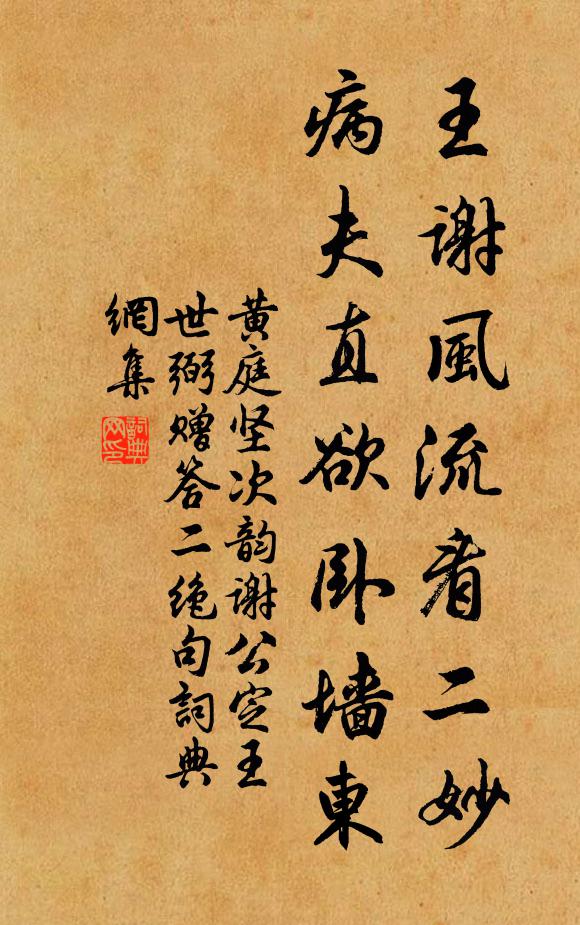 王謝風流看二妙
病夫直欲卧墙東
黄庭坚次韵谢公定王
世弼赠答二绝句詞典
網集
詞典
网印